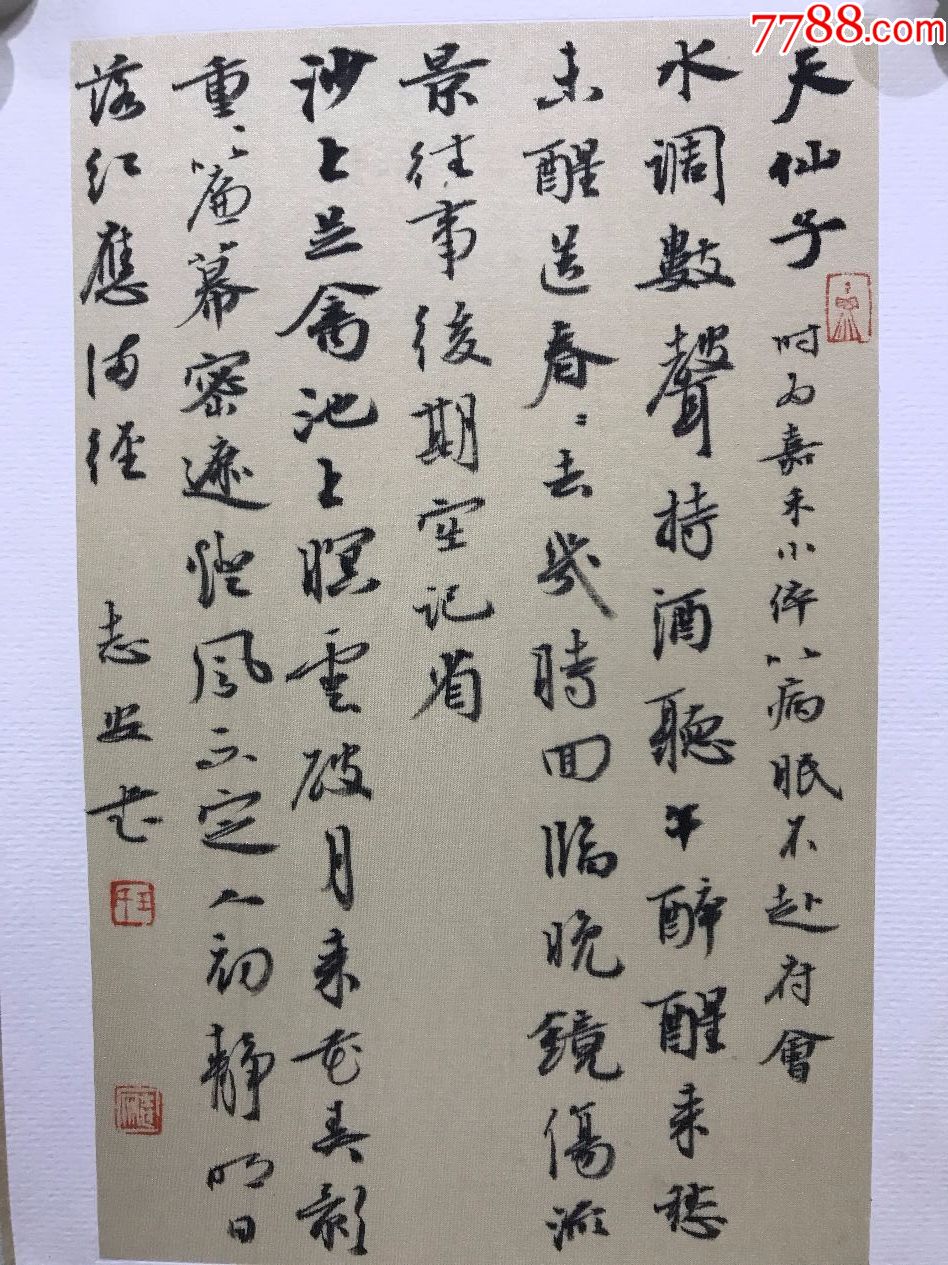 7788.com
天仙子 时为嘉禾小倅以病眠不赴府會
水调數聲持酒聽午醉醒来愁
未醒送春〻去幾時回臨晚鏡傷流
景往事後期空记省
沙上並禽池上暝雲破月来花弄影
重〻簾幕密遮燈風不定人初静明日
落红應满徑 志安书